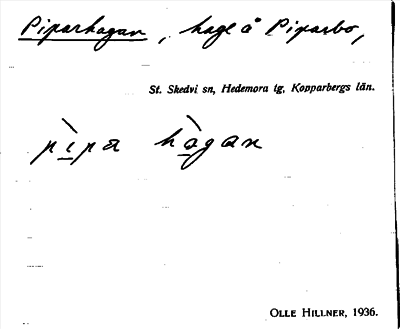 Piparhagan, hage å Piparbo,
St. Skedvi sn, Hedemora tg, Kopparbergs län.
pìpa hàgan
OLLE HILLNER, 1936.